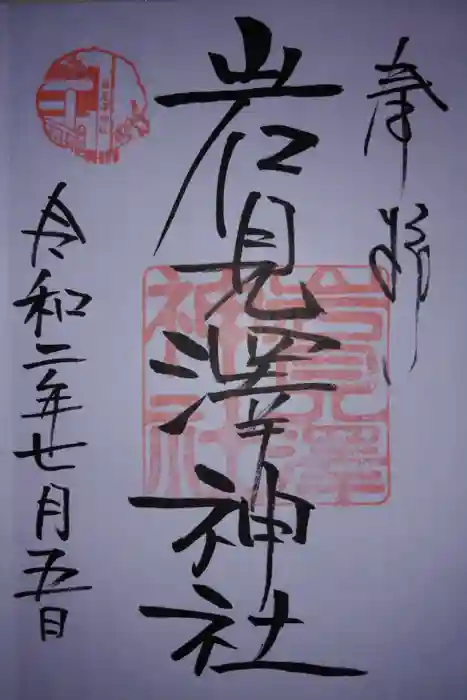 奉拝
岩見澤神社
令和二年七月五日
岩見澤
神社